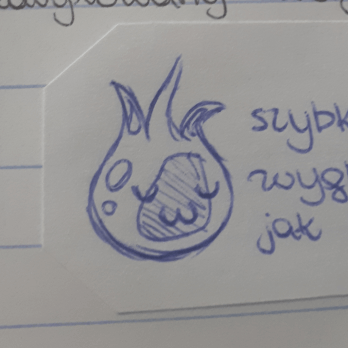 szybk
wygl
jak